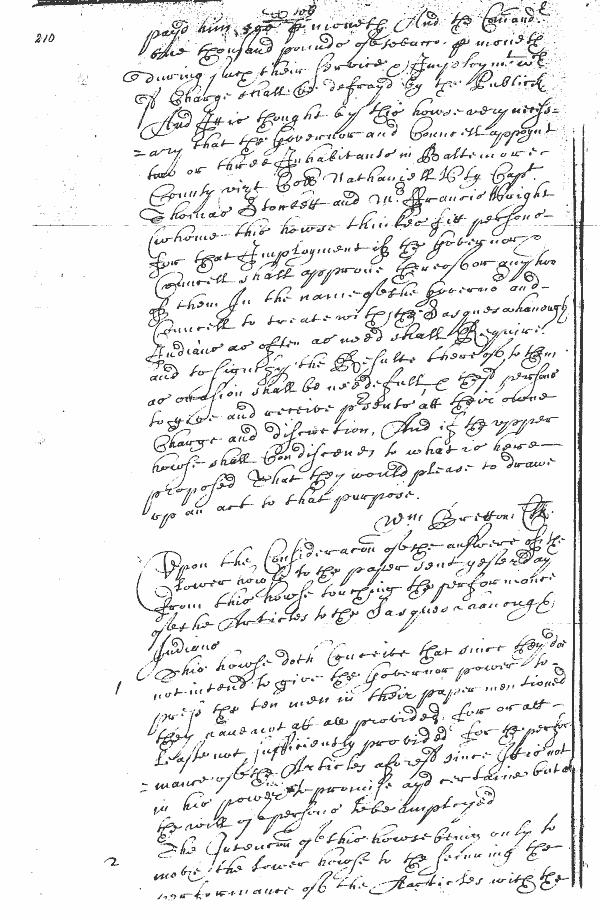 210
p job
payd him 500 p moneth And the Comandr
one thousand pounds of tobacco p moneth
during such their service & Imploymt wch
Charge shall be defrayd by the Publick
And It is thought by this howse very necess=
=ary that the Governor and Councell appoynt
two or three Inhabitants in Baltemore
County vizt Coll Nathaniell Uty Capt
Thomas Stockett and Mr Francis Wright
whome this howse thinkes fitt persons
for that Imployment if the Governor &
Councell shall approve thereof or any two
of them In the name of the Governor and
Councell to treate with the Sasquesahanough
Indians as often as need shall Require
and to signify the Resulte thereof to them
as occasion shall be needefull & these persons
to give and receive psents att their owne
Charge and discretion, And if the upper
howse shall Condiscend to what is here
proposed That they would please to drawe
up an act to that purpose.
Wm Bretton Clk
Upon the Consideracon of the answere of the
Lower howse to the paper sent yesterday
from this howse touching the performance
of the Articles to the Sasquesahanough
Indians
1
This howse doth Conceive that since they doe
not intend to give the Governor power to
press the ten men in their paper mentioned
they have not att all provided, for or att
Least not sufficiently provided for the perfor
=mance of the Articles aforesd since It is not
in his power to promise ayd certaine but att
the will of persons to be employed
2
The Intencon of this howse being only to
move the Lower howse to the securing the
performance of the Articles with the